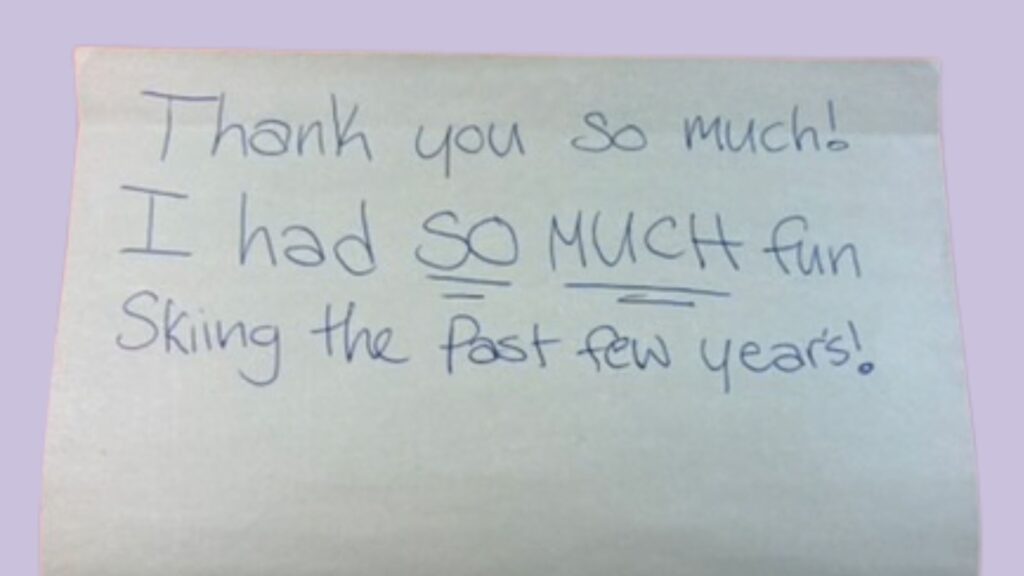 Thank you so much!
I had SO MUCH fun
Skiing the Past few years!